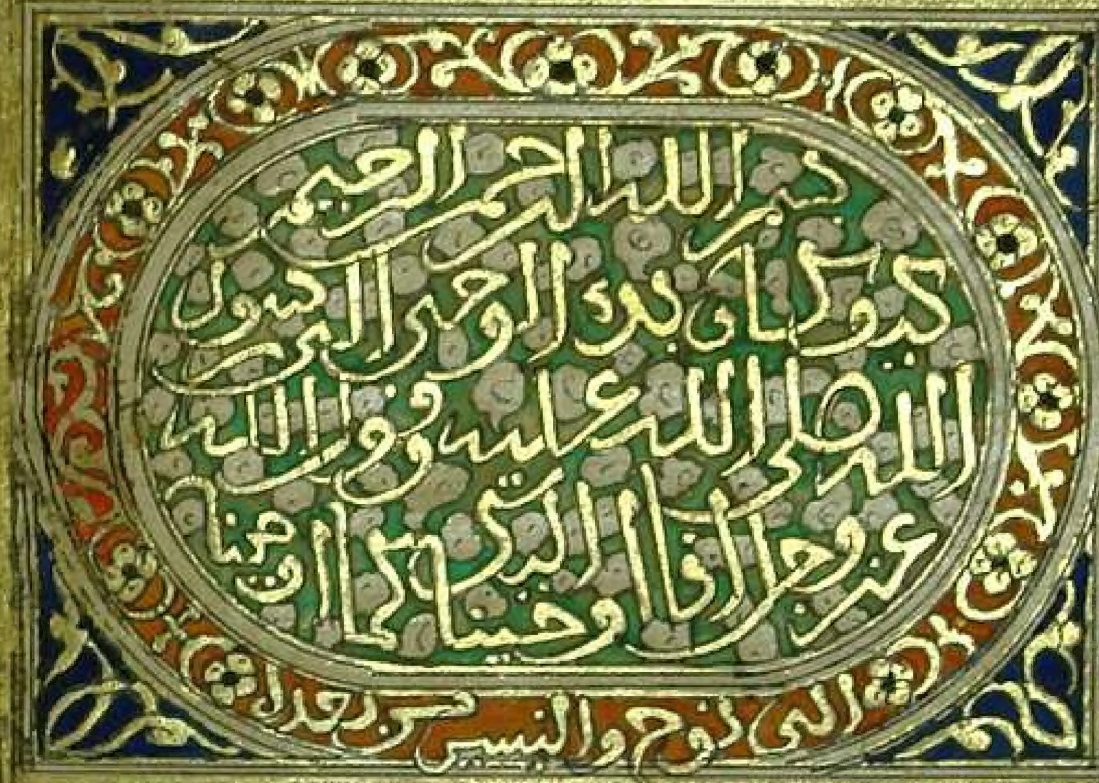 بسم الله الرحمن الرحيم
كيف كان بدء الوحي الى رسول
الله صلى الله عليه وقول الله
عز وجل انا اوحينا اليك كما اوحينا
الى نوح والنبيين من بعده